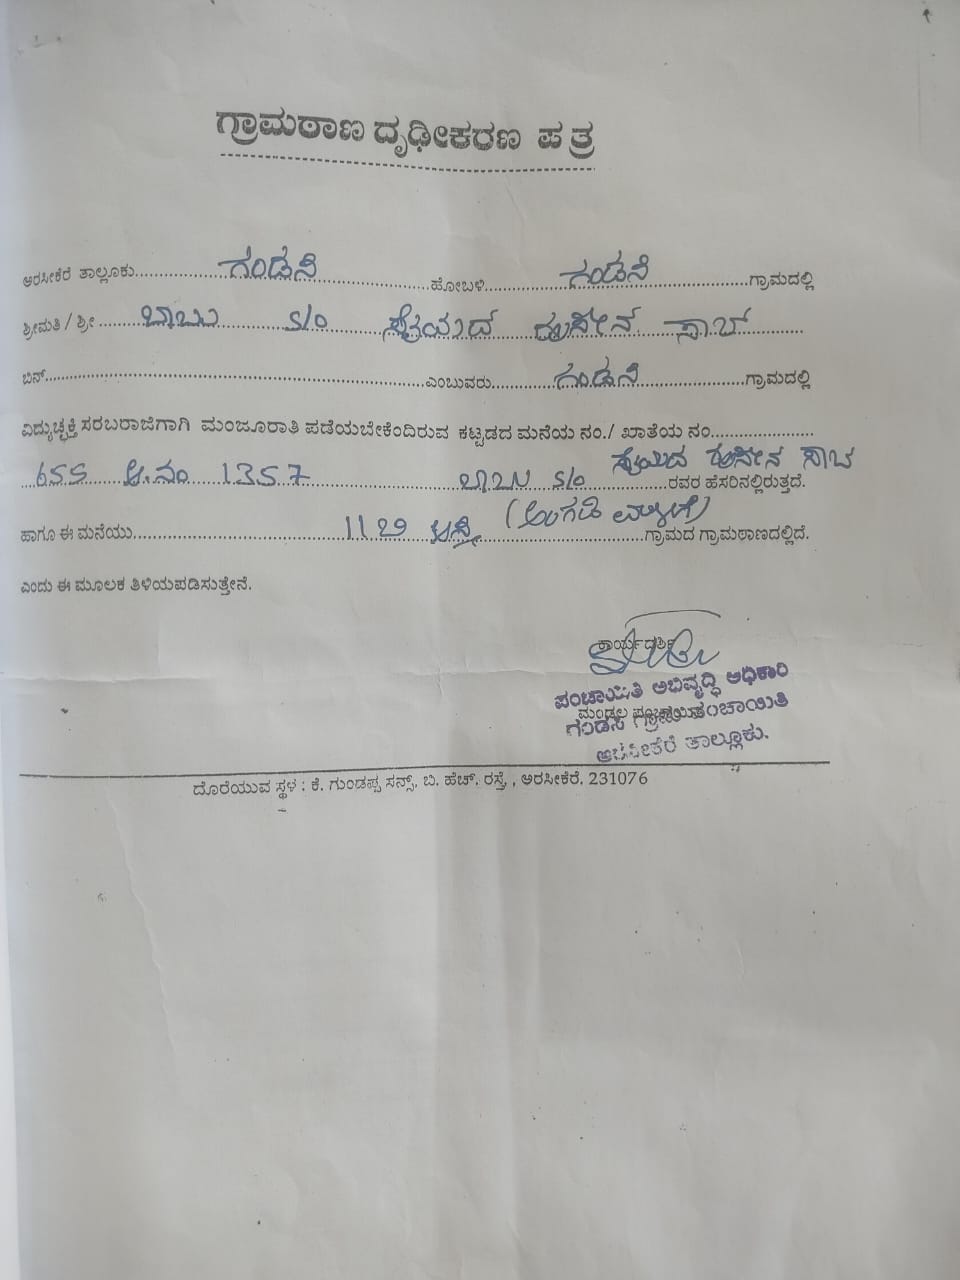 ಗ್ರಾಮಠಾಣ ದೃಢೀಕರಣ ಪತ್ರ
ಅರಸೀಕೆರೆ ತಾಲ್ಲೂಕು ಗಂಡಸಿ ಹೋಬಳಿ ಗಂಡಸಿ ಗ್ರಾಮದಲ್ಲಿ
ಶ್ರೀಮತಿ / ಶ್ರೀ ಬಾಬು S/o ಸೈಯದ್ ಹುಸೇನ್ ಸಾಬ್
ಬಿನ್ ಎಂಬುವರು ಗಂಡಸಿ ಗ್ರಾಮದಲ್ಲಿ
ವಿದ್ಯುಚ್ಛಕ್ತಿ ಸರಬರಾಜಿಗಾಗಿ ಮಂಜೂರಾತಿ ಪಡೆಯಬೇಕೆಂದಿರುವ ಕಟ್ಟಡದ ಮನೆಯ ನಂ./ ಖಾತೆಯ ನಂ
655 ಆ.ನಂ 1357 ಬಾಬು S/o ಸೈಯದ ಹುಸೇನ ಸಾಬ ರವರ ಹೆಸರಿನಲ್ಲಿರುತ್ತದೆ.
ಹಾಗೂ ಈ ಮನೆಯು (ಅಂಗಡಿ ಮಳಿಗೆ) ಗ್ರಾಮದ ಗ್ರಾಮಠಾಣದಲ್ಲಿದೆ.
ಎಂದು ಈ ಮೂಲಕ ತಿಳಿಯಪಡಿಸುತ್ತೇನೆ.
ಕಾರ್ಯದರ್ಶಿ
ಪಂಚಾಯಿತಿ ಅಭಿವೃದ್ಧಿ ಅಧಿಕಾರಿ
ಗಂಡಸಿ ಗ್ರಾಮ ಪಂಚಾಯಿತಿ
ಅರಸೀಕೆರೆ ತಾಲ್ಲೂಕು.
ದೊರೆಯುವ ಸ್ಥಳ : ಕೆ. ಗುಂಡಪ್ಪ ಸನ್ಸ್, ಬಿ. ಹೆಚ್. ರಸ್ತೆ, , ಅರಸೀಕೆರೆ. 231076